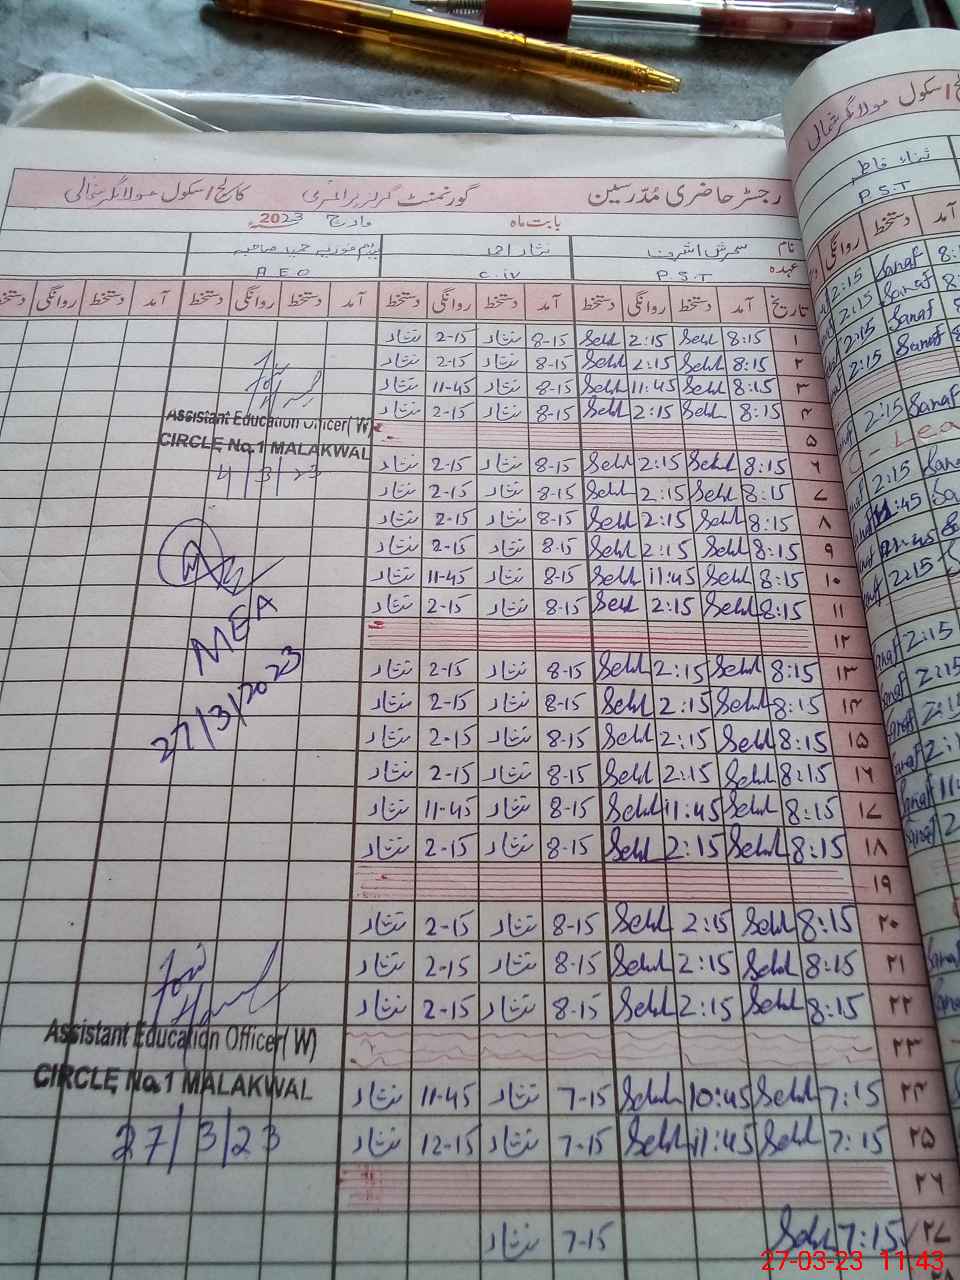 رجسٹر حاضری مُدرسین گورنمنٹ گرلز پرائمری کالج اسکول مولانگر شمالی
بابت ماہ مارچ 2023
نام سحرش اشرف نثار احمد میڈم فوزیہ حمید صاحبہ
عہدہ P.S.T C.iv A.E.O
تاریخ آمد دستخط روانگی دستخط آمد دستخط روانگی دستخط آمد دستخط روانگی دستخط آمد روانگی دستخط
۱ 8:15 Sehl 2:15 Sehl 8-15 نثار 2-15 نثار
۲ 8:15 Sehl 2:15 Sehl 8-15 نثار 2-15 نثار
۳ 8:15 Sehl 11:45 Sehl 8-15 نثار 11-45 نثار
۴ 8:15 Sehl 2:15 Sehl 8-15 نثار 2-15 نثار
۵
۶ 8:15 Sehl 2:15 Sehl 8-15 نثار 2-15 نثار
۷ 8:15 Sehl 2:15 Sehl 8-15 نثار 2-15 نثار
۸ 8:15 Sehl 2:15 Sehl 8-15 نثار 2-15 نثار
۹ 8:15 Sehl 2:15 Sehl 8-15 نثار 2-15 نثار
۱۰ 8:15 Sehl 11:45 Sehl 8-15 نثار 11-45 نثار
۱۱ 8:15 Sehl 2:15 Sehl 8-15 نثار 2-15 نثار
۱۲
۱۳ 8:15 Sehl 2:15 Sehl 8-15 نثار 2-15 نثار
۱۴ 8:15 Sehl 2:15 Sehl 8-15 نثار 2-15 نثار
۱۵ 8:15 Sehl 2:15 Sehl 8-15 نثار 2-15 نثار
۱۶ 8:15 Sehl 2:15 Sehl 8-15 نثار 2-15 نثار
۱۷ 8:15 Sehl 11:45 Sehl 8-15 نثار 11-45 نثار
۱۸ 8:15 Sehl 2:15 Sehl 8-15 نثار 2-15 نثار
۱۹
۲۰ 8:15 Sehl 2:15 Sehl 8-15 نثار 2-15 نثار
۲۱ 8:15 Sehl 2:15 Sehl 8-15 نثار 2-15 نثار
۲۲ 8:15 Sehl 2:15 Sehl 8-15 نثار 2-15 نثار
۲۳
۲۴ 7:15 Sehl 10:45 Sehl 7-15 نثار 11-45 نثار
۲۵ 7:15 Sehl 11:45 Sehl 7-15 نثار 12-15 نثار
۲۶
۲۷ 7:15 Sehl 7-15 نثار
Assistant Education Officer(W)
CIRCLE No.1 MALAKWAL
4/3/23
MEA
27/3/2023
Assistant Education Officer(W)
CIRCLE No.1 MALAKWAL
27/3/23
اسکول مولانگر شمالی
P.S.T
آمد دستخط روانگی
27-03-23 11:43